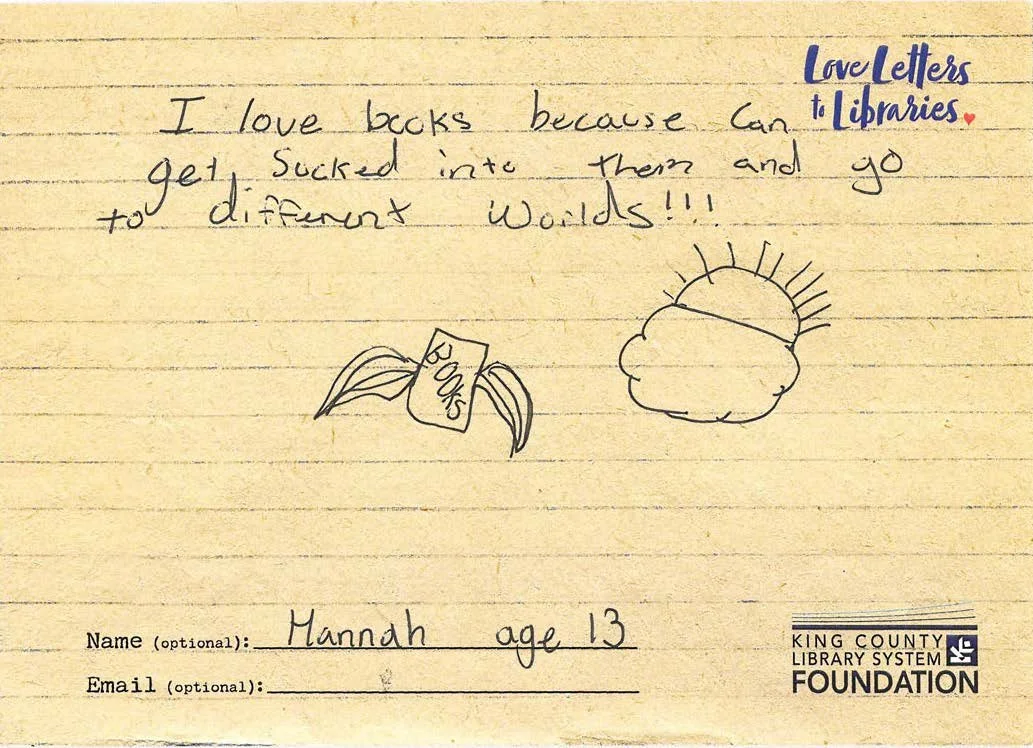 Love Letters
to Libraries.
I love books because can
get sucked into them and go
to different worlds!!!
BOOKS
Name (optional): Hannah age 13
Email (optional):
KING COUNTY
LIBRARY SYSTEM
FOUNDATION